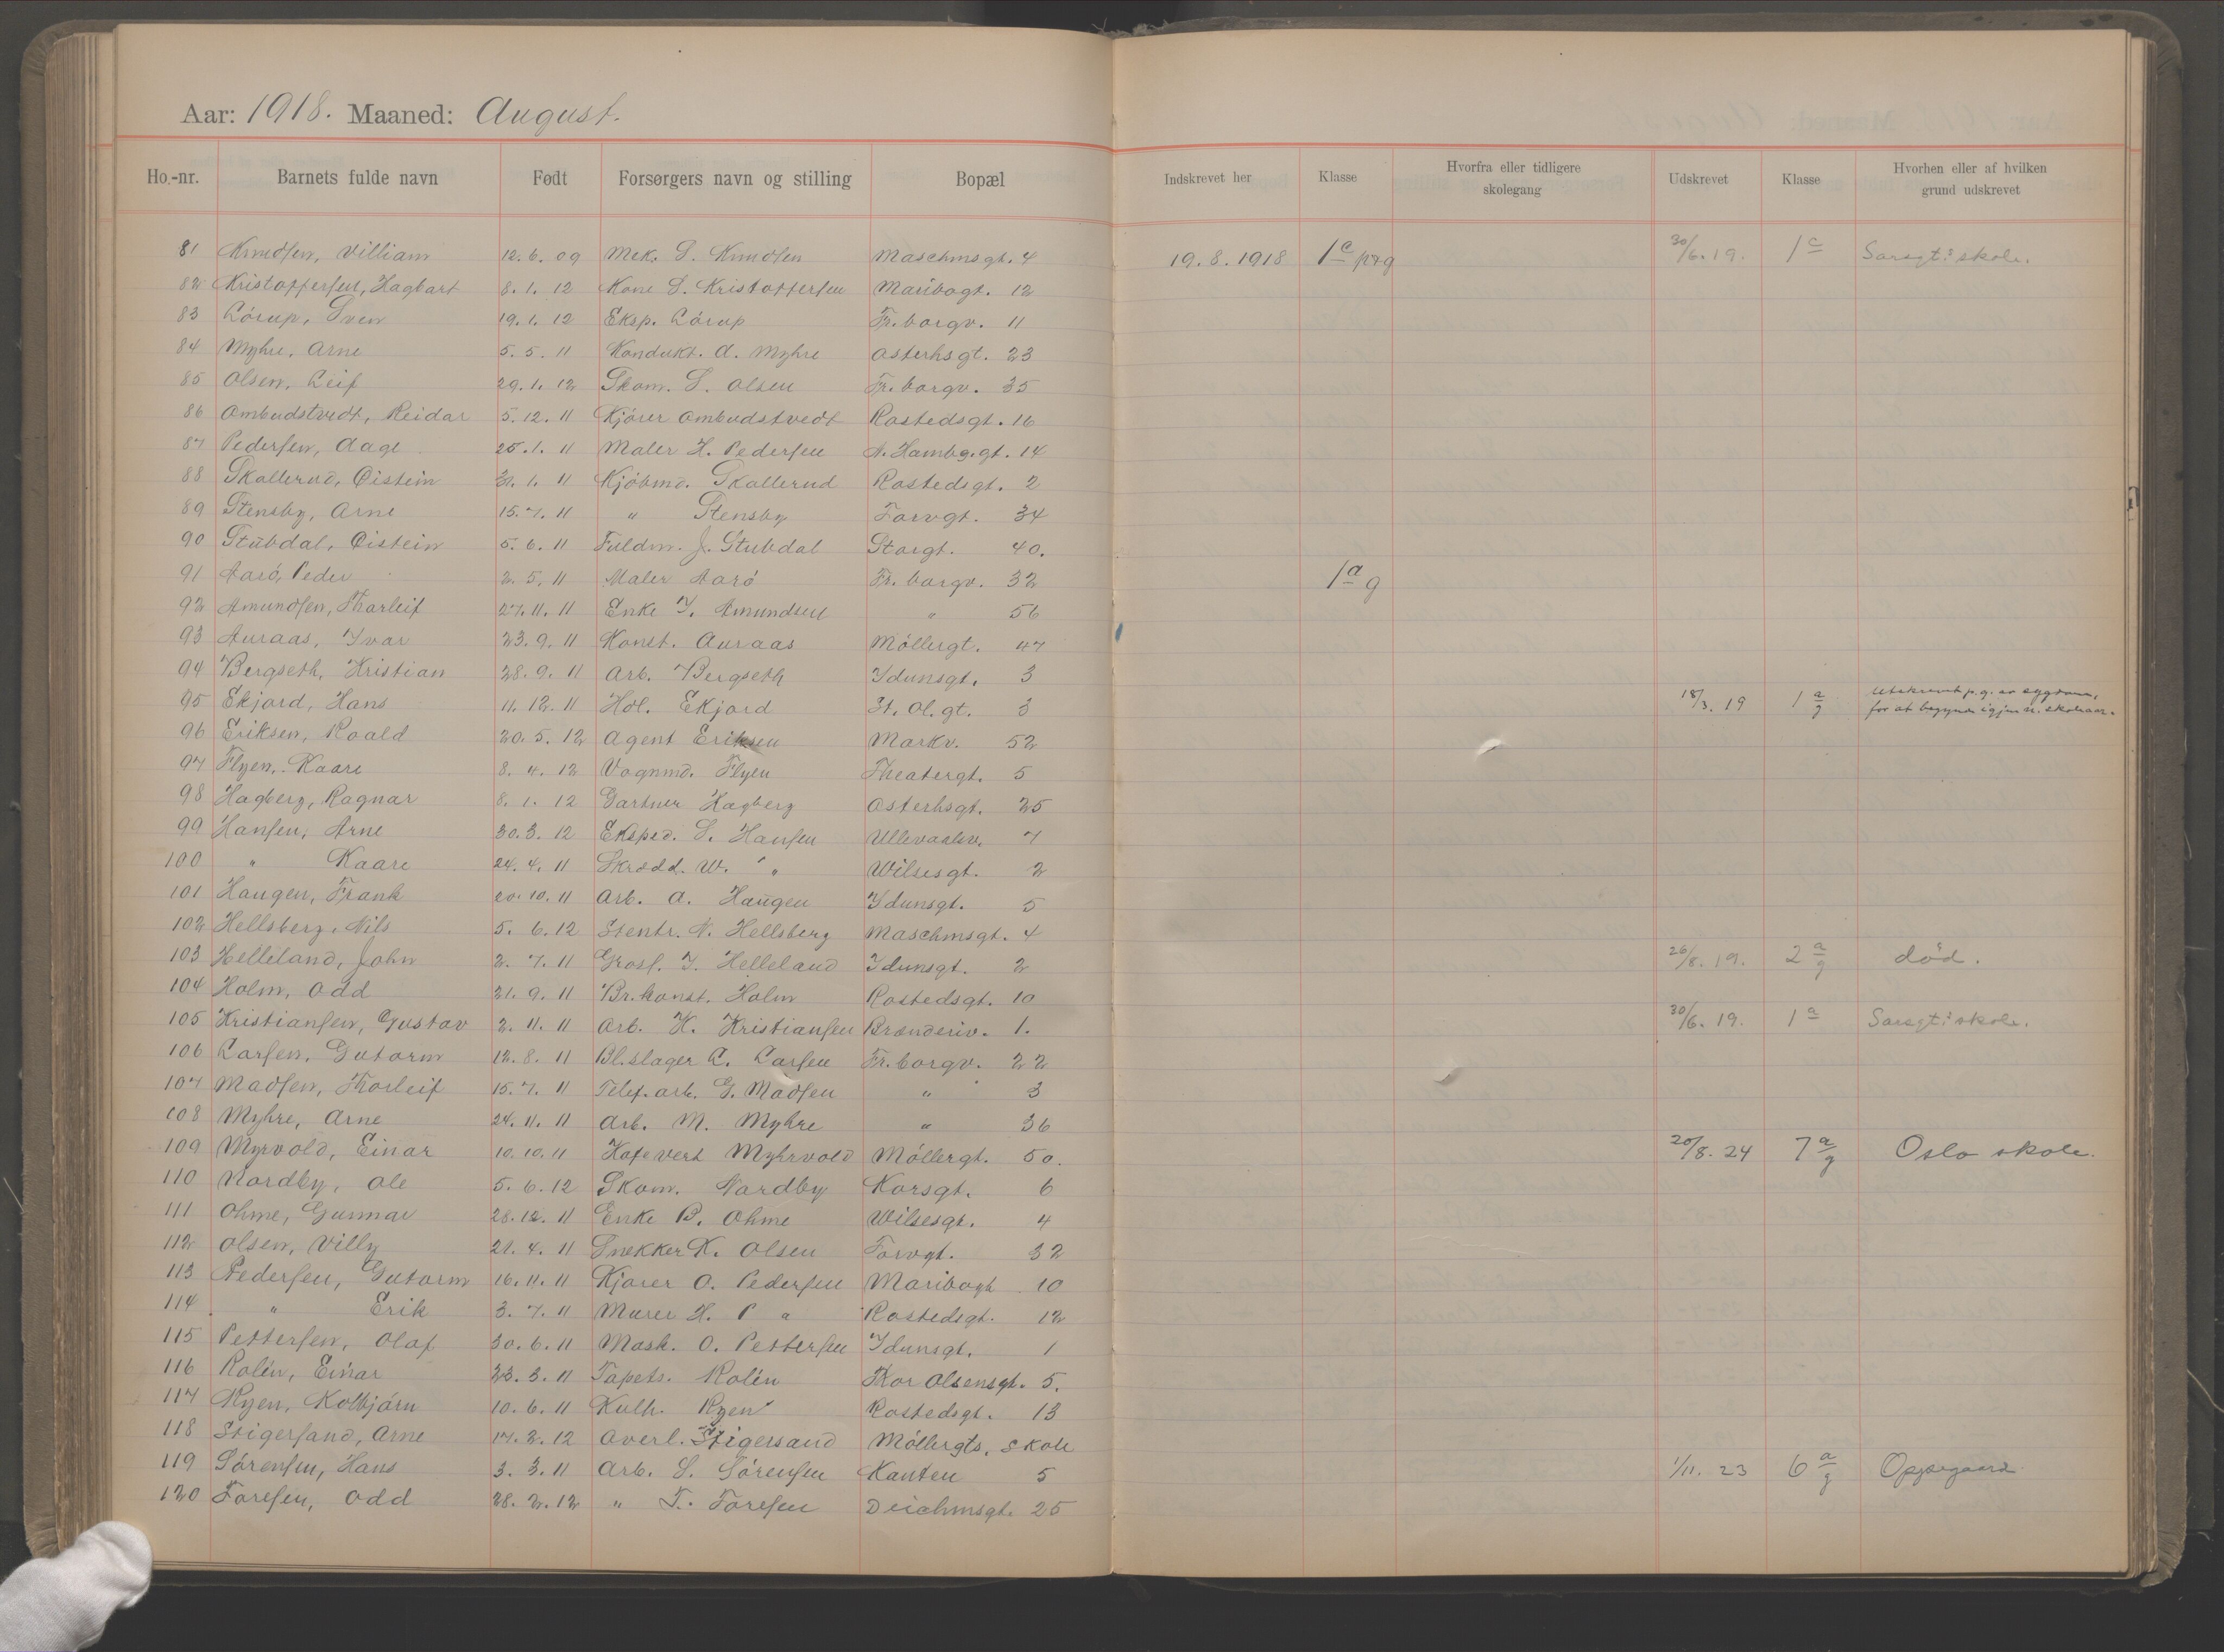 Aar: 1918. Maaned: August.
Ho.-nr. Barnets fulde navn Født Forsørgers navn og stilling Bopæl Indskrevet her Klasse Hvorfra eller tidligere skolegang Udskrevet Klasse Hvorhen eller af hvilken grund udskrevet
81 Knudsen, Villiam 12.6.09 Mek. S. Knudsen Maschmsgt. 4 19.8.1918 1c 30/6.19. 1c Sarsgt.s skole.
82 Kristoffersen, Hagbart 8.1.12 Kone S. Kristoffersen Maribogt. 12
83 Lórup, Sven 19.1.12 Eksp. Lórup Fr.borgv. 11
84 Myhre, Arne 5.5.11 Kondukt. A. Myhre Osterhsgt. 23
85 Olsen, Leif 29.1.12 Skom. S. Olsen Fr.borgv. 35
86 Ombudstvedt, Reidar 5.12.11 Kjórer Ombudstvedt Rostedsgt. 16
87 Pedersen, Aage 25.1.11 Maler H. Pedersen N. Hambg.gt. 14
88 Skallerud, Öistein 31.1.11 Kjöbmd. Skallerud Rostedsgt. 2
89 Stensby, Arne 15.7.11 " Stensby Torvgt. 34
90 Stubdal, Öistein 5.6.11 Fuldm. J. Stubdal Storgt. 40.
91 Aaró, Peder 2.5.11 Maler Aaró Fr.borgv. 32 1a g
92 Amundsen, Thorleif 27.11.11 Enke I. Amundsen " 56
93 Auraas, Ivar 23.9.11 Konst. Auraas Móllergt. 47
94 Bergseth, Kristian 28.9.11 Arb. Bergseth Idunsgt. 3
95 Ekjord, Hans 11.12.11 Hdl. Ekjord St. Ol.gt. 3 18/3.19 1a g Utskrevet p.g. av sygdom, for at begynde igjen n. skoleaar.
96 Eriksen, Roald 20.5.12 Agent Eriksen Markv. 52
97 Flyen, Kaare 8.4.12 Vognmd. Flyen Theatergt. 5
98 Hagberg, Ragnar 8.1.12 Gartner Hagberg Osterhsgt. 25
99 Hansen, Arne 30.3.12 Eksped. S. Hansen Ullevaalsv. 7
100 " Kaare 24.4.11 Skrædd. W. " Wilsesgt. 2
101 Haugen, Frank 20.10.11 Arb. A. Haugen Idunsgt. 5
102 Hellsberg, Nils 5.6.12 Stentr. N. Hellsberg Maschmsgt. 4
103 Helleland, John 2.7.11 Gross. I. Helleland Idunsgt. 2 26/8.19. 2a g död.
104 Holm, Odd 21.9.11 Br.konst. Holm Rostedsgt. 10
105 Kristiansen, Gustav 2.11.11 Arb. K. Kristiansen Brænderiv. 1. 30/6.19. 1a Sarsgt.s skole.
106 Larsen, Gutorm 12.8.11 Bl.slager L. Larsen Fr.borgv. 22
107 Madsen, Thorleif 15.7.11 Telef.arb. G. Madsen " 3
108 Myhre, Arne 24.11.11 Arb. M. Myhre " 36
109 Myrvold, Einar 10.10.11 Kafevert Myhrvold Móllergt. 50. 20/8.24 7a g Oslo skole.
110 Nordby, Ole 5.6.12 Skom. Nordby Korsgt. 6
111 Ohme, Gunnar 28.12.11 Enke B. Ohme Wilsesgt. 4
112 Olsen, Villy 21.4.11 Snekker K. Olsen Torvgt. 32
113 Pedersen, Gutorm 16.11.11 Kjorer O. Pedersen Maribogt. 10
114 " Erik 3.7.11 Murer H. P " Rostedsgt. 12
115 Pettersen, Olaf 30.6.11 Mask. O. Pettersen Idunsgt. 1
116 Rolén, Einar 23.3.11 Tapets. Rolén Thor Olsensgt. 5.
117 Ryen, Kolbjórn 10.6.11 Kulh. Ryen Rostedsgt. 13
118 Stigersand, Arne 17.2.12 Overl. Stigersand Móllergts. skole
119 Sórensen, Hans 3.3.11 Arb. S. Sórensen Kanten 5 1/11.23 6a g Oppegaard
120 Toresen, Odd 28.2.12 " T. Toresen Deichmsgt. 25